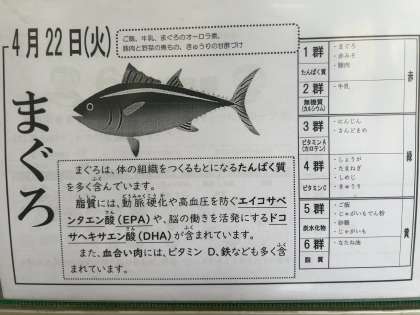 4月22日(火)
ご飯、牛乳、まぐろのオーロラ煮、
豚肉と野菜の煮もの、きゅうりの甘酢づけ
まぐろ
まぐろは、体の組織をつくるもとになるたんぱく質
を多く含んでいます。
脂質には、動脈硬化や高血圧を防ぐエイコサペ
ンタエン酸(EPA)や、脳の働きを活発にするドコ
サヘキサエン酸(DHA)が含まれています。
また、血合い肉には、ビタミンD、鉄なども多く含
まれています。
1群
たんぱく質
・まぐろ
・赤みそ
・豚肉
2群
無機質
(カルシウム)
・牛乳
赤
3群
ビタミンA
(カロテン)
・にんじん
・さんどまめ
4群
ビタミンC
・しょうが
・たまねぎ
・しめじ
・きゅうり
緑
5群
炭水化物
・ご飯
・じゃがいもでん粉
・砂糖
・じゃがいも
6群
脂質
・なたね油
黄